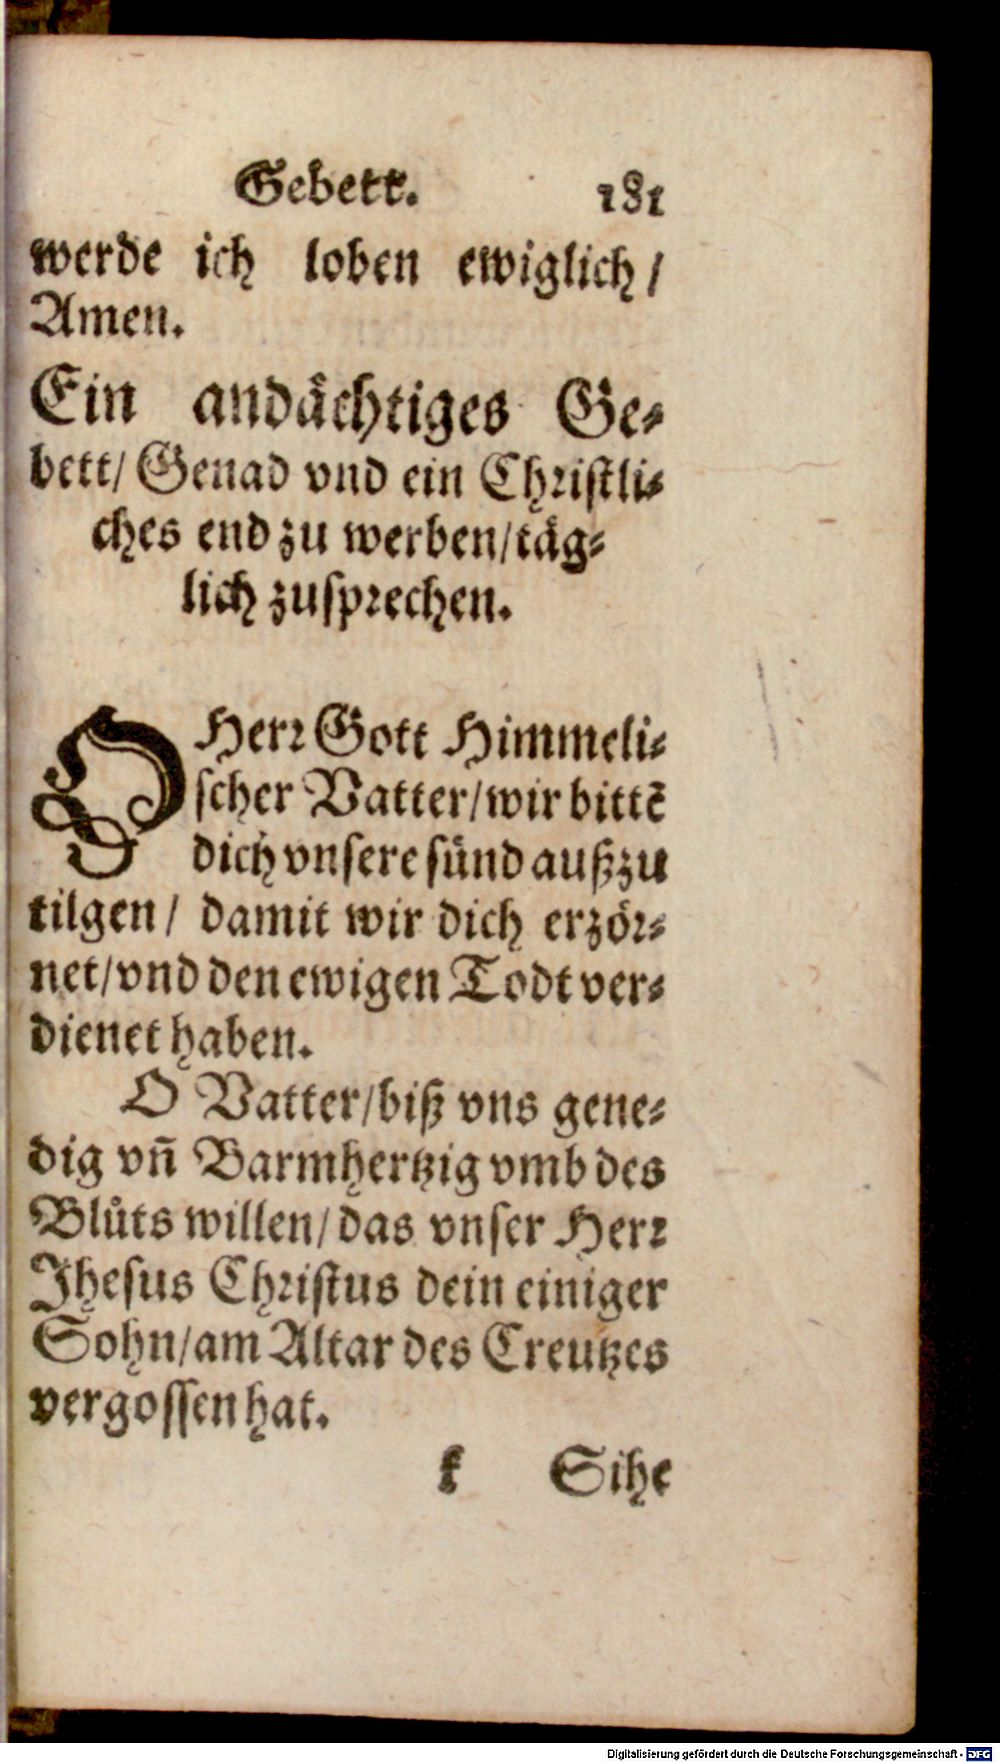 Gebett. 181
werde ich loben ewiglich/
Amen.
Ein andaͤchtiges Ge⸗
bett/ Genad vnd ein Chriſtli⸗
ches end zu werben/taͤg⸗
lich zuſprechen.
O Herꝛ Gott Himmeli⸗
ſcher Vatter/wir bittē
dich vnſere ſuͤnd außzu
tilgen/ damit wir dich erzoͤꝛ⸗
net/vnd den ewigen Todt ver⸗
dienet haben.
O Vatter/biß vns gene⸗
dig vñ Barmhertzig vmb des
Bluͦts willen/das vnſer Herꝛ
Jheſus Chꝛiſtus dein einiger
Sohn/am Altar des Creutzes
vergoſſen hat.
k Sihe
Digitalisierung gefördert durch die Deutsche Forschungsgemeinschaft - DFG